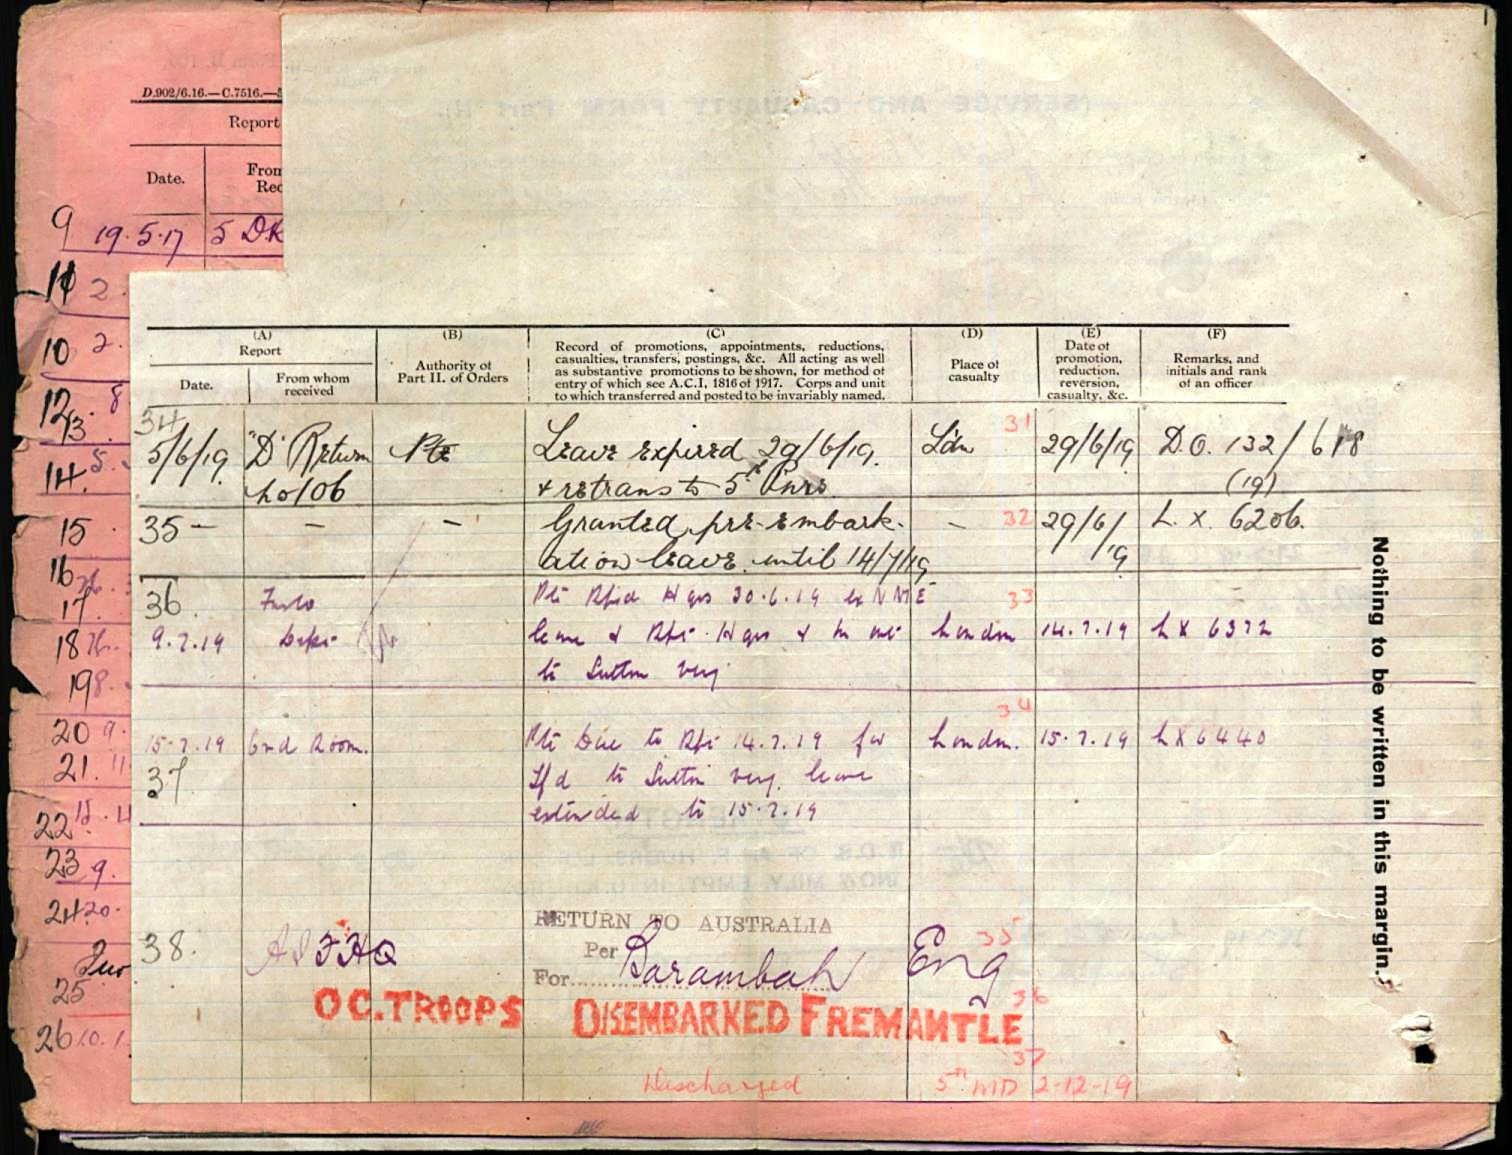 D.902/6.16.—C.7516.—
Report
Date.
From
Rec
9 19.5.17 5 D.K
11 2.
10 2.
12 8
13.
14. 5.
15
16
17
18
19 8.
20 9.
21. 11
22 15. 4
23 9.
24 20.
25
26 10.1.
(A)
Report
Date.
From whom
received
(B)
Authority of
Part II. of Orders
(C)
Record of promotions, appointments, reductions,
casualties, transfers, postings, &c. All acting as well
as substantive promotions to be shown, for method of
entry of which see A.C.I. 1816 of 1917. Corps and unit
to which transferred and posted to be invariably named.
(D)
Place of
casualty
(E)
Date of
promotion,
reduction,
reversion,
casualty, &c.
(F)
Remarks, and
initials and rank
of an officer
34 31
5/6/19 "D" Return Pte Leave expired 29/6/19. L'dn 29/6/19 D.O. 132/618
40/06 & retrans to 5th Pnrs. (19)
35 – – – Granted pre-embark- – 32 29/6/19 L. X. 6206.
ation leave until 14/7/19
36. 33
Rpt Hqrs 30.6.19 ex NME
9.7.19 leave & Rpt Hqrs London 14.7.19 L X 6372
to Sutton Very
34
15.7.19 Cmd Room. Due to Rpt 14.7.19 for London. 15.7.19 L X 6440
37 to Sutton Very. leave
extended to 15.7.19
38. AIFHQ RETURN TO AUSTRALIA Eng 35
Per Barambah
For
OC. TROOPS DISEMBARKED FREMANTLE 36
37
Discharged 5th MD 2-12-19
Nothing to be written in this margin.